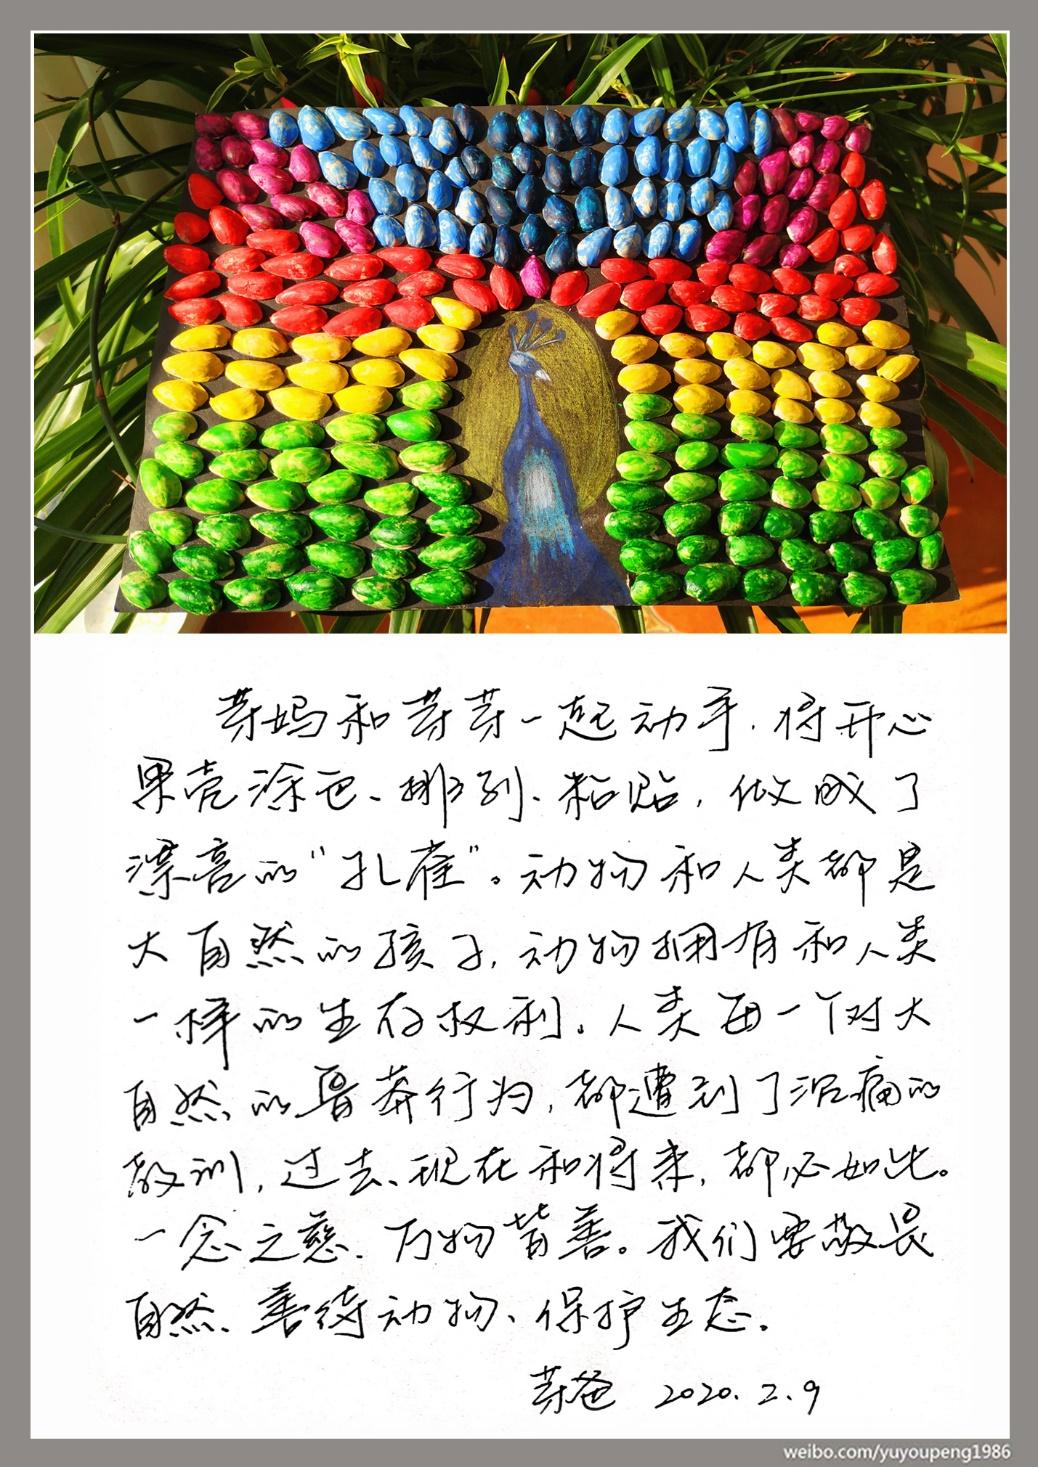 芽妈和芽芽一起动手,将开心
果壳涂色、排列、粘贴,做成了
漂亮的“孔雀”。动物和人类都是
大自然的孩子,动物拥有和人类
一样的生存权利。人类每一个对大
自然的鲁莽行为,都遭到了沉痛的
教训,过去、现在和将来,都必如此。
一念之慈,万物皆善。我们要敬畏
自然、善待动物、保护生态。
芽爸 2020.2.9
weibo.com/yuyoupeng1986